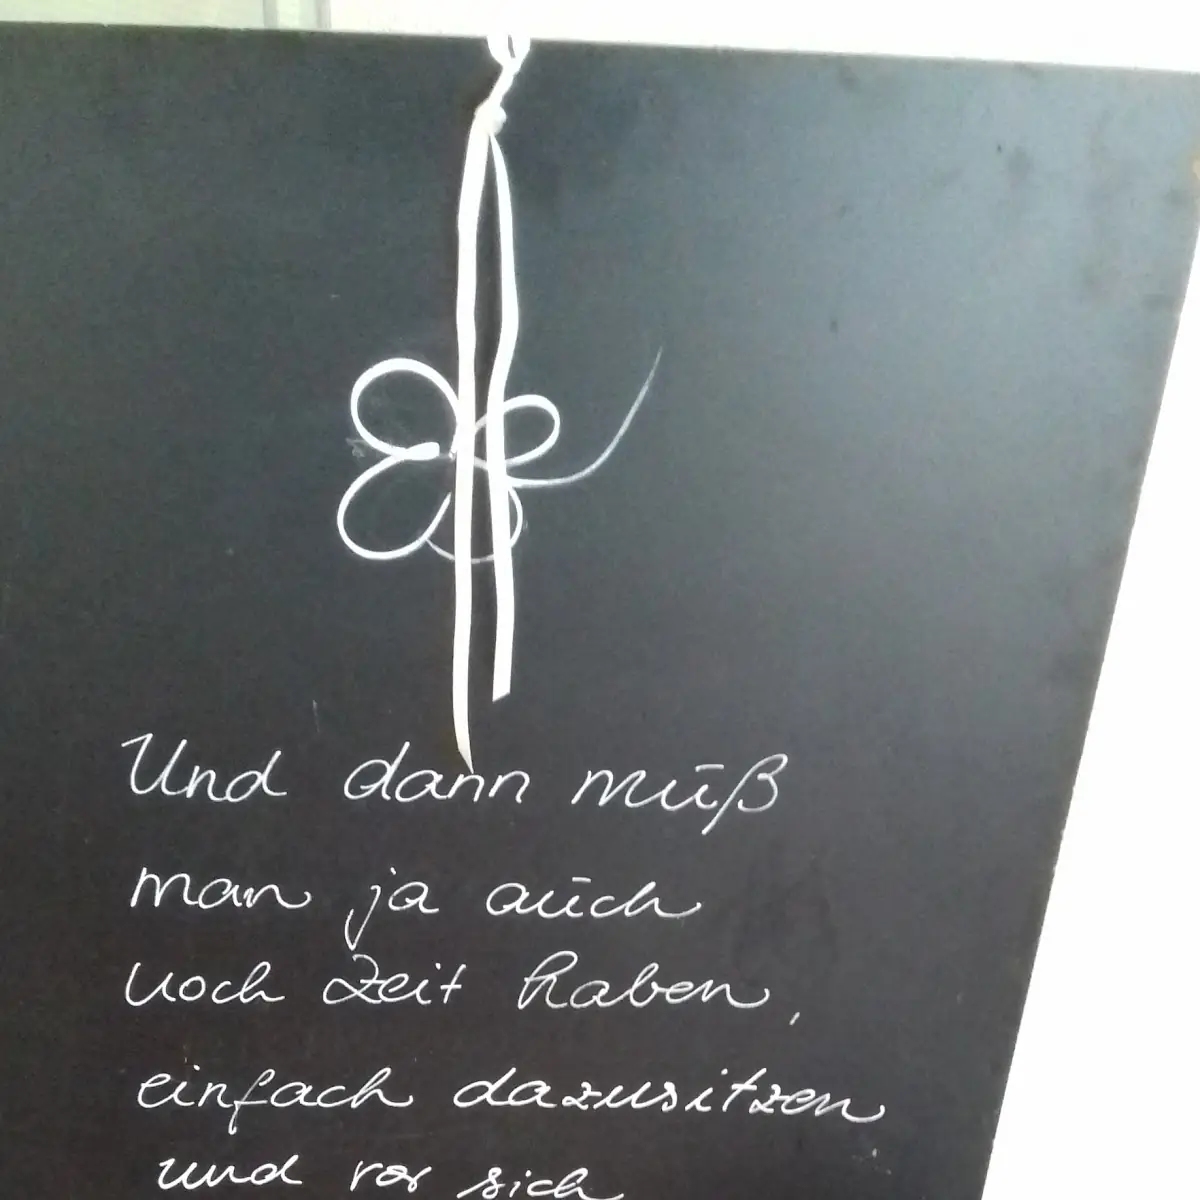 Und dann muß
man ja auch
noch Zeit haben,
einfach dazusitzen
und vor sich